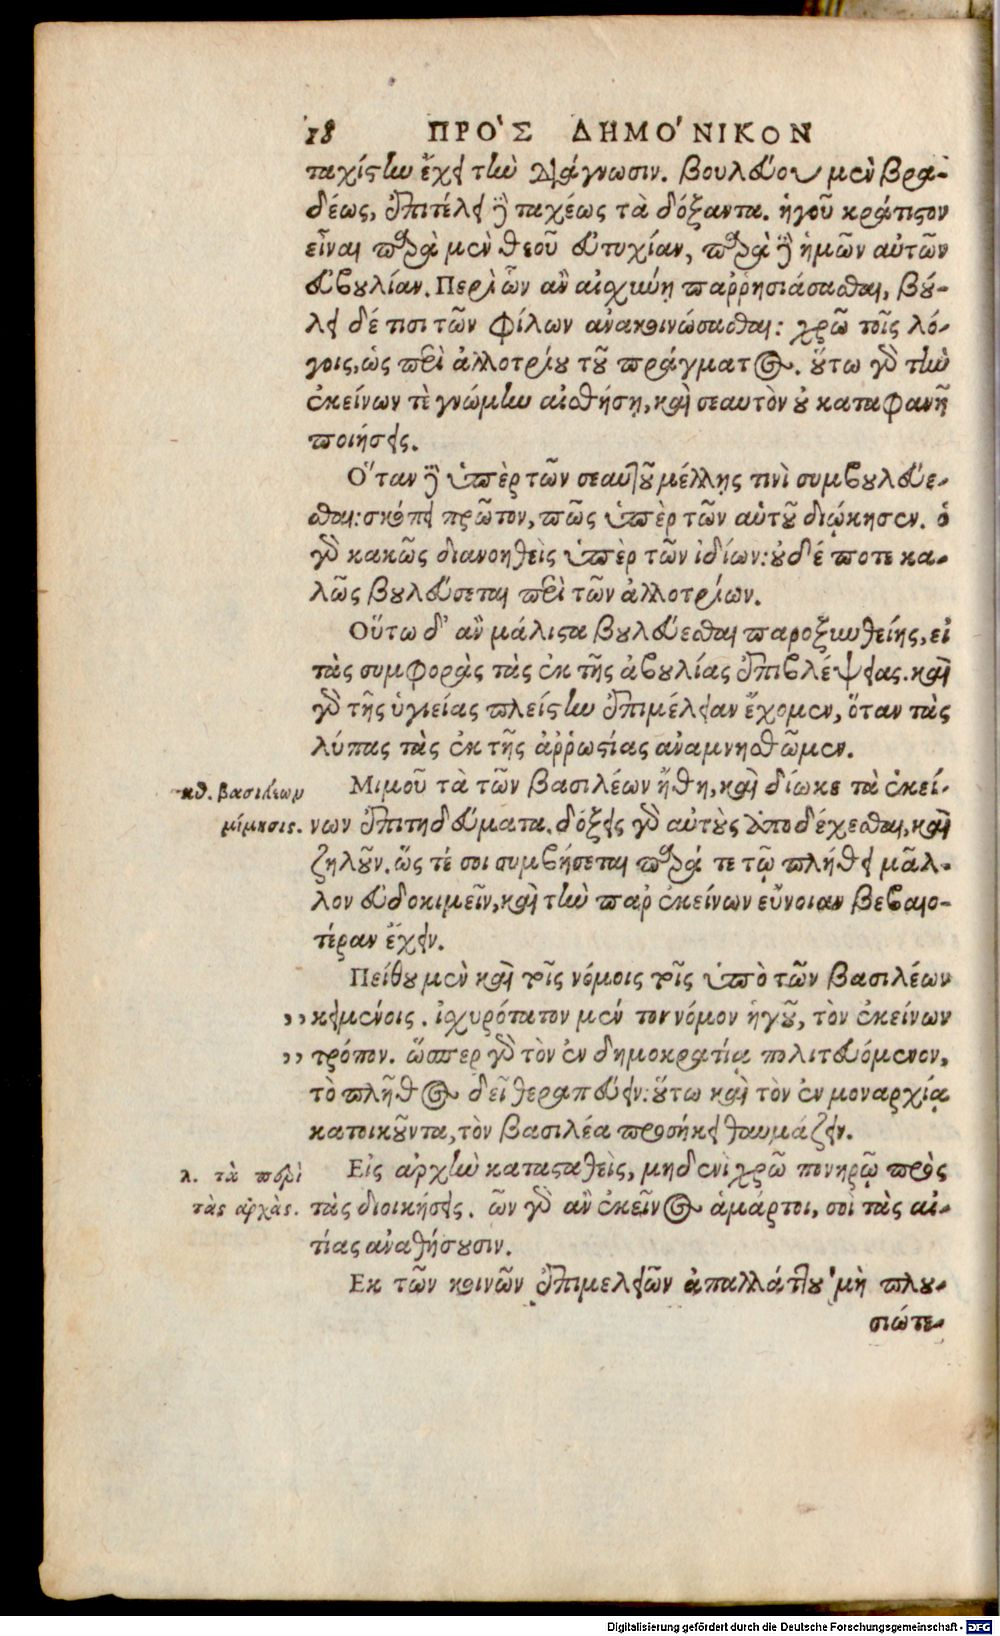 18 ΠΡΟ᾽Σ ΔΗΜΟ´ΝΙΚΟΝ
ταχίστην ἔχει τὴν διάγνωσιν. βουλεύου μὲν βρα-
δέως, ἐπιτέλει δὲ ταχέως τὰ δόξαντα. ἡγοῦ κράτιστον
εἶναι παρὰ μὲν θεοῦ εὐτυχίαν, παρὰ δὲ ἡμῶν αὐτῶν
εὐβουλίαν. Περὶ ὧν ἂν αἰσχύνῃ παῤῥησιάσασθαι, βού-
λει δέ τισι τῶν φίλων ἀνακοινώσασθαι: χρῶ τοῖς λό-
γοις, ὡς περὶ ἀλλοτρίου τοῦ πράγματος. οὕτω γὰρ τὴν
ἐκείνων τὲ γνώμην αἰσθήσῃ, καὶ σεαυτὸν οὐ καταφανῆ
ποιήσεις.
Ὅταν δὲ ὑπὲρ τῶν σεαυτοῦ μέλλῃς τινὶ συμβουλεύε-
σθαι: σκόπει πρῶτον, πῶς ὑπὲρ τῶν αὑτοῦ διῴκησεν. ὁ
γὰρ κακῶς διανοηθεὶς ὑπὲρ τῶν ἰδίων: οὐδέ ποτε κα-
λῶς βουλεύσεται περὶ τῶν ἀλλοτρίων.
Οὕτω δ᾽ ἂν μάλιστα βουλεύεσθαι παροξυνθείης, εἰ
τὰς συμφορὰς τὰς ἐκ τῆς ἀβουλίας ἐπιβλέψειας. καὶ
γὰρ τῆς ὑγιείας πλείστην ἐπιμέλειαν ἔχομεν, ὅταν τὰς
λύπας τὰς ἐκ τῆς ἀῤῥωστίας ἀναμνησθῶμεν.
κθ. βασιλέων Μιμοῦ τὰ τῶν βασιλέων ἤθη, καὶ δίωκε τὰ ἐκεί-
μίμησις. νων ἐπιτηδεύματα. δόξεις γὰρ αὐτοὺς ἀποδέχεσθαι, καὶ
ζηλοῦν. ὥς τέ σοι συμβήσεται παρά τε τῷ πλήθει μᾶλ-
λον εὐδοκιμεῖν, καὶ τὴν παρ᾽ ἐκείνων εὔνοιαν βεβαιο-
τέραν ἔχειν.
Πείθου μὲν καὶ τοῖς νόμοις τοῖς ὑπὸ τῶν βασιλέων
,, κειμένοις. ἰσχυρότατον μέν τοι νόμον ἡγοῦ, τὸν ἐκείνων
,, τρόπον. ὥσπερ γὰρ τὸν ἐν δημοκρατίᾳ πολιτευόμενον,
τὸ πλῆθος δεῖ θεραπεύειν: οὕτω καὶ τὸν ἐν μοναρχίᾳ
κατοικοῦντα, τὸν βασιλέα προσήκει θαυμάζειν.
λ. τὰ περὶ Εἰς ἀρχὴν κατασταθεὶς, μηδενὶ χρῶ πονηρῷ πρὸς
τὰς ἀρχὰς. τὰς διοικήσεις. ὧν γὰρ ἂν ἐκεῖνος ἁμάρτοι, σοὶ τὰς αἰ-
τίας ἀναθήσουσιν.
Εκ τῶν κοινῶν ἐπιμελειῶν ἀπαλλάττου μὴ πλου-
σιώτε-
Digitalisierung gefördert durch die Deutsche Forschungsgemeinschaft - DFG